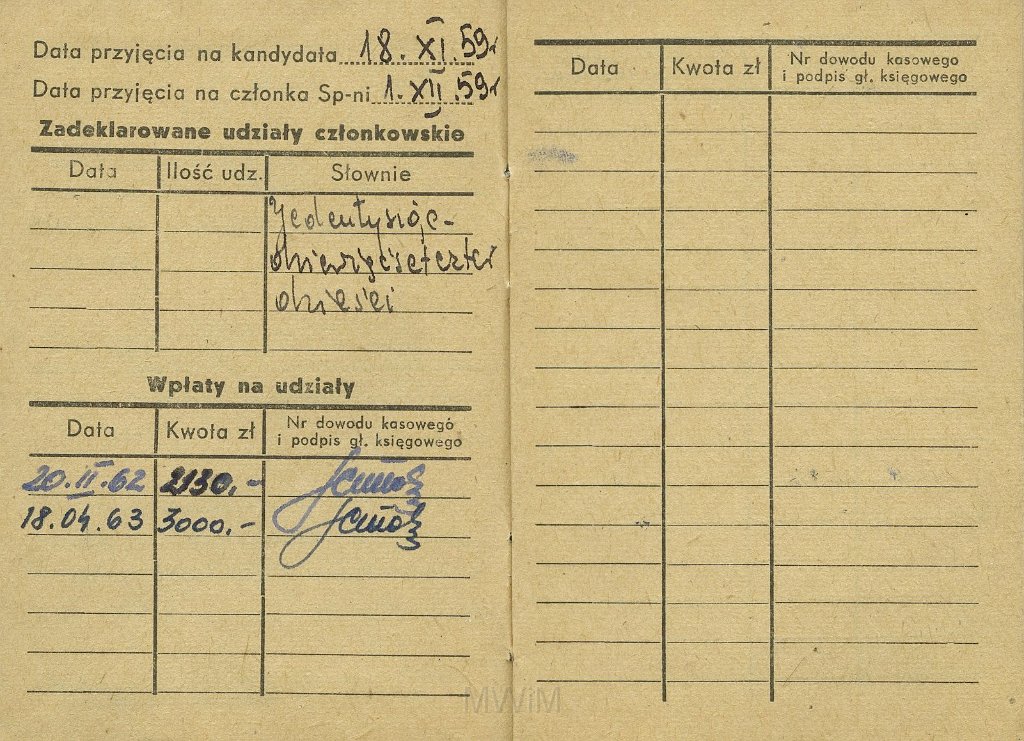 Data przyjęcia na kandydata 18. XI. 59r
Data przyjęcia na członka Sp-ni 1. XII. 59r
Zadeklarowane udziały członkowskie
Data Ilość udz. Słownie
Jedentysiąc-
dziewięćsetczter
dzieści
Wpłaty na udziały
Data Kwota zł Nr dowodu kasowego
i podpis gł. księgowego
20. II. 62 2130,-
18. 04. 63 3000,-
Data Kwota zł Nr dowodu kasowego
i podpis gł. księgowego
MWiM